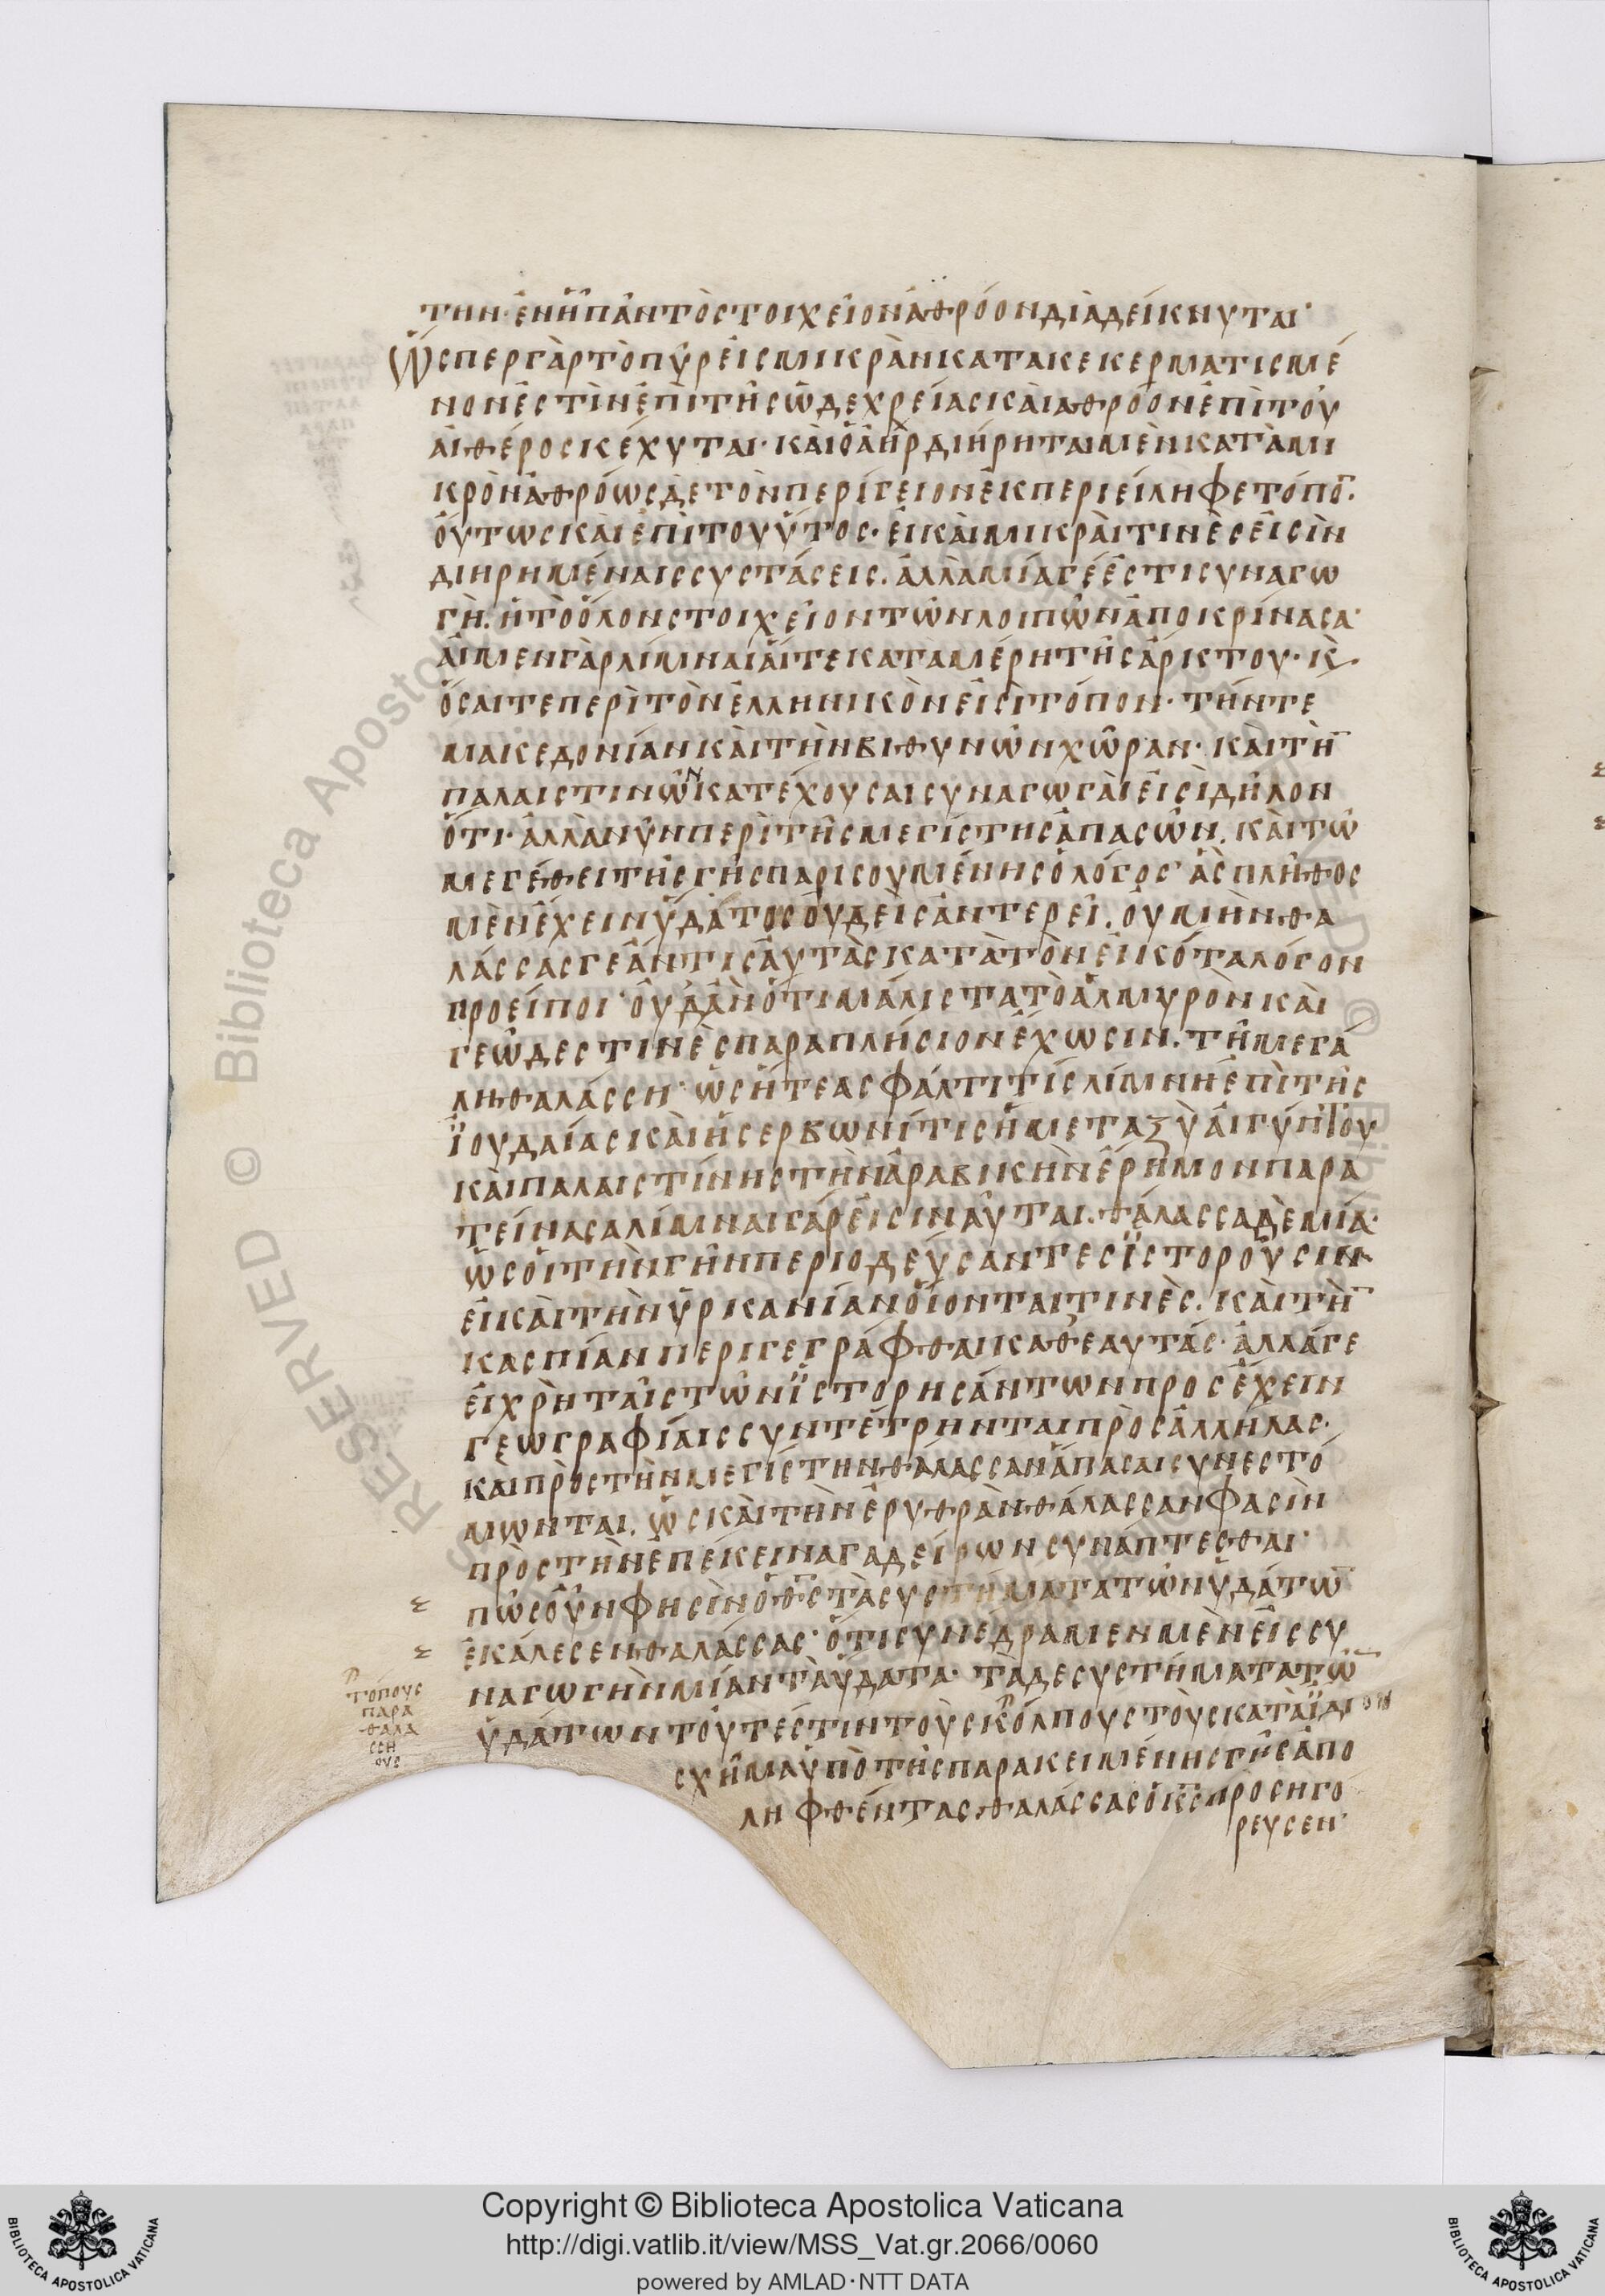 την· ἐν ἧ παντὸς τοιχεῖον ἀθρόον διαδείκνυται·
Ὥσπερ γὰρ τὸ πῦρ εἰς μικρὰν κατακεκερματισμέ
νον ἐστὶν ἐπὶ τῆς ὧδε χρείας καὶ ἀθρόον ἐπὶ τοῦ
αἰθέρος κέχυται· καὶ ὁ ἀὴρ διήρηται μὲν κατὰ μι
κρὸν ἀθρόως δὲ τὸν περίγειον ἐκπεριείληφε τόπο̅.
οὕτως καὶ ἐπὶ τοῦ ὕτος· εἰ καὶ μικραί τινὲς εἰσὶν
διηρημέναις συστάσεις. ἀλλὰ μία γέ ἐστι συναγω
γὴ. ἡ τὸ ὅλον στοιχεῖον τῶν λοιπῶν ἀποκρίνασα·
αἱ μὲν γὰρ λίμναι αἵ τε κατὰ μέρη τῆς ἄρκτου· κ̀
ὅσαι τε περὶ τὸν ἑλληνικὸν εἰσὶ τόπον· τήν τε
μακεδονίαν καὶ τὴν βιθυνῶν χῶραν· καὶ τὴ̅
παλαιστινῶν κατέχουσαι συναγωγαὶ εἰσὶ δῆλον
ὅτι· ἀλλὰ νῦν περὶ τῆς μεγίστης ἁπασῶν. καὶ τῶ
μεγέθει τῆς γῆς παρισουμένης ὁ λόγος· ἃς πλῆθος
μὲν ἔχειν ὕδατος οὐδεὶς ἀντερεῖ. οὐ μὴν θα
λάσσας γε ἄν τις αὐτὰς κατὰ τὸν εἰκότα λόγον
προείποι· οὐδ' ἂν ὅτι μάλιστα τὸ ἁλμυρὸν καὶ
γεῶδες τινὲς παραπλήσιον ἔχωσιν. τῆ μεγά
λη θαλάσση· ὡς ἥ τε ασφάλτιτίς λίμνη ἐπὶ τῆς
ἰουδαίας καὶ ἡ σερβωνίτις ἡ μεταξὺ αἰγύπτου
καὶ παλαιστίνης τὴν ἀραβικὴν ἔρημον παρα
τείνασα λίμναι γάρ εἰσιν αὗται. θάλασσα δὲ μία·
ὡς οἱ τὴν γῆν περιοδεύσαντες ἱστοροῦσιν·
εἰ καὶ τὴν ὑρκανίαν οἴονται τινὲς. καὶ τὴ̅
κασπίαν περιγεγράφθαι καθ' εαυτάς· ἀλλά γε
εἰ χρὴ ταῖς τῶν ἱστορησάντων προσέχειν
γεωγραφίαις συντέτρηνται πρὸς ἀλλήλας·
καὶ πρὸς τὴν μεγίστην θάλασσαν ἅπασαι συνεστό
μωνται. ὡς καὶ τὴν ἐρυθρὰν θάλασσαν φασὶν
πρὸς τὴν ἐπέκεινα γαδείρων συνάπτεσθαι·
πῶς οὖν φησὶν ὁ θ̅ς̅ τὰ συστήματα τῶν ὑδάτω̅
ἐκάλεσεν θαλάσσας· ὅτι συνέδραμεν μὲν εἰς συ
ναγωγὴν μίαν τὰ ὕδατα· τὰ δε συστήματα τῶ̅
ὑδάτων τουτέστιν τοὺς κόλπους τοὺς κατὰ ἴδιον
σχῆμα ὑπὸ τῆς παρακειμένης γῆς ἀπο
ληφθέντας θαλάσσας ὁ κ̅ς̅ προσηγο
ρευσεν·
τόπους
παρα
θαλα
σσῃ
ους